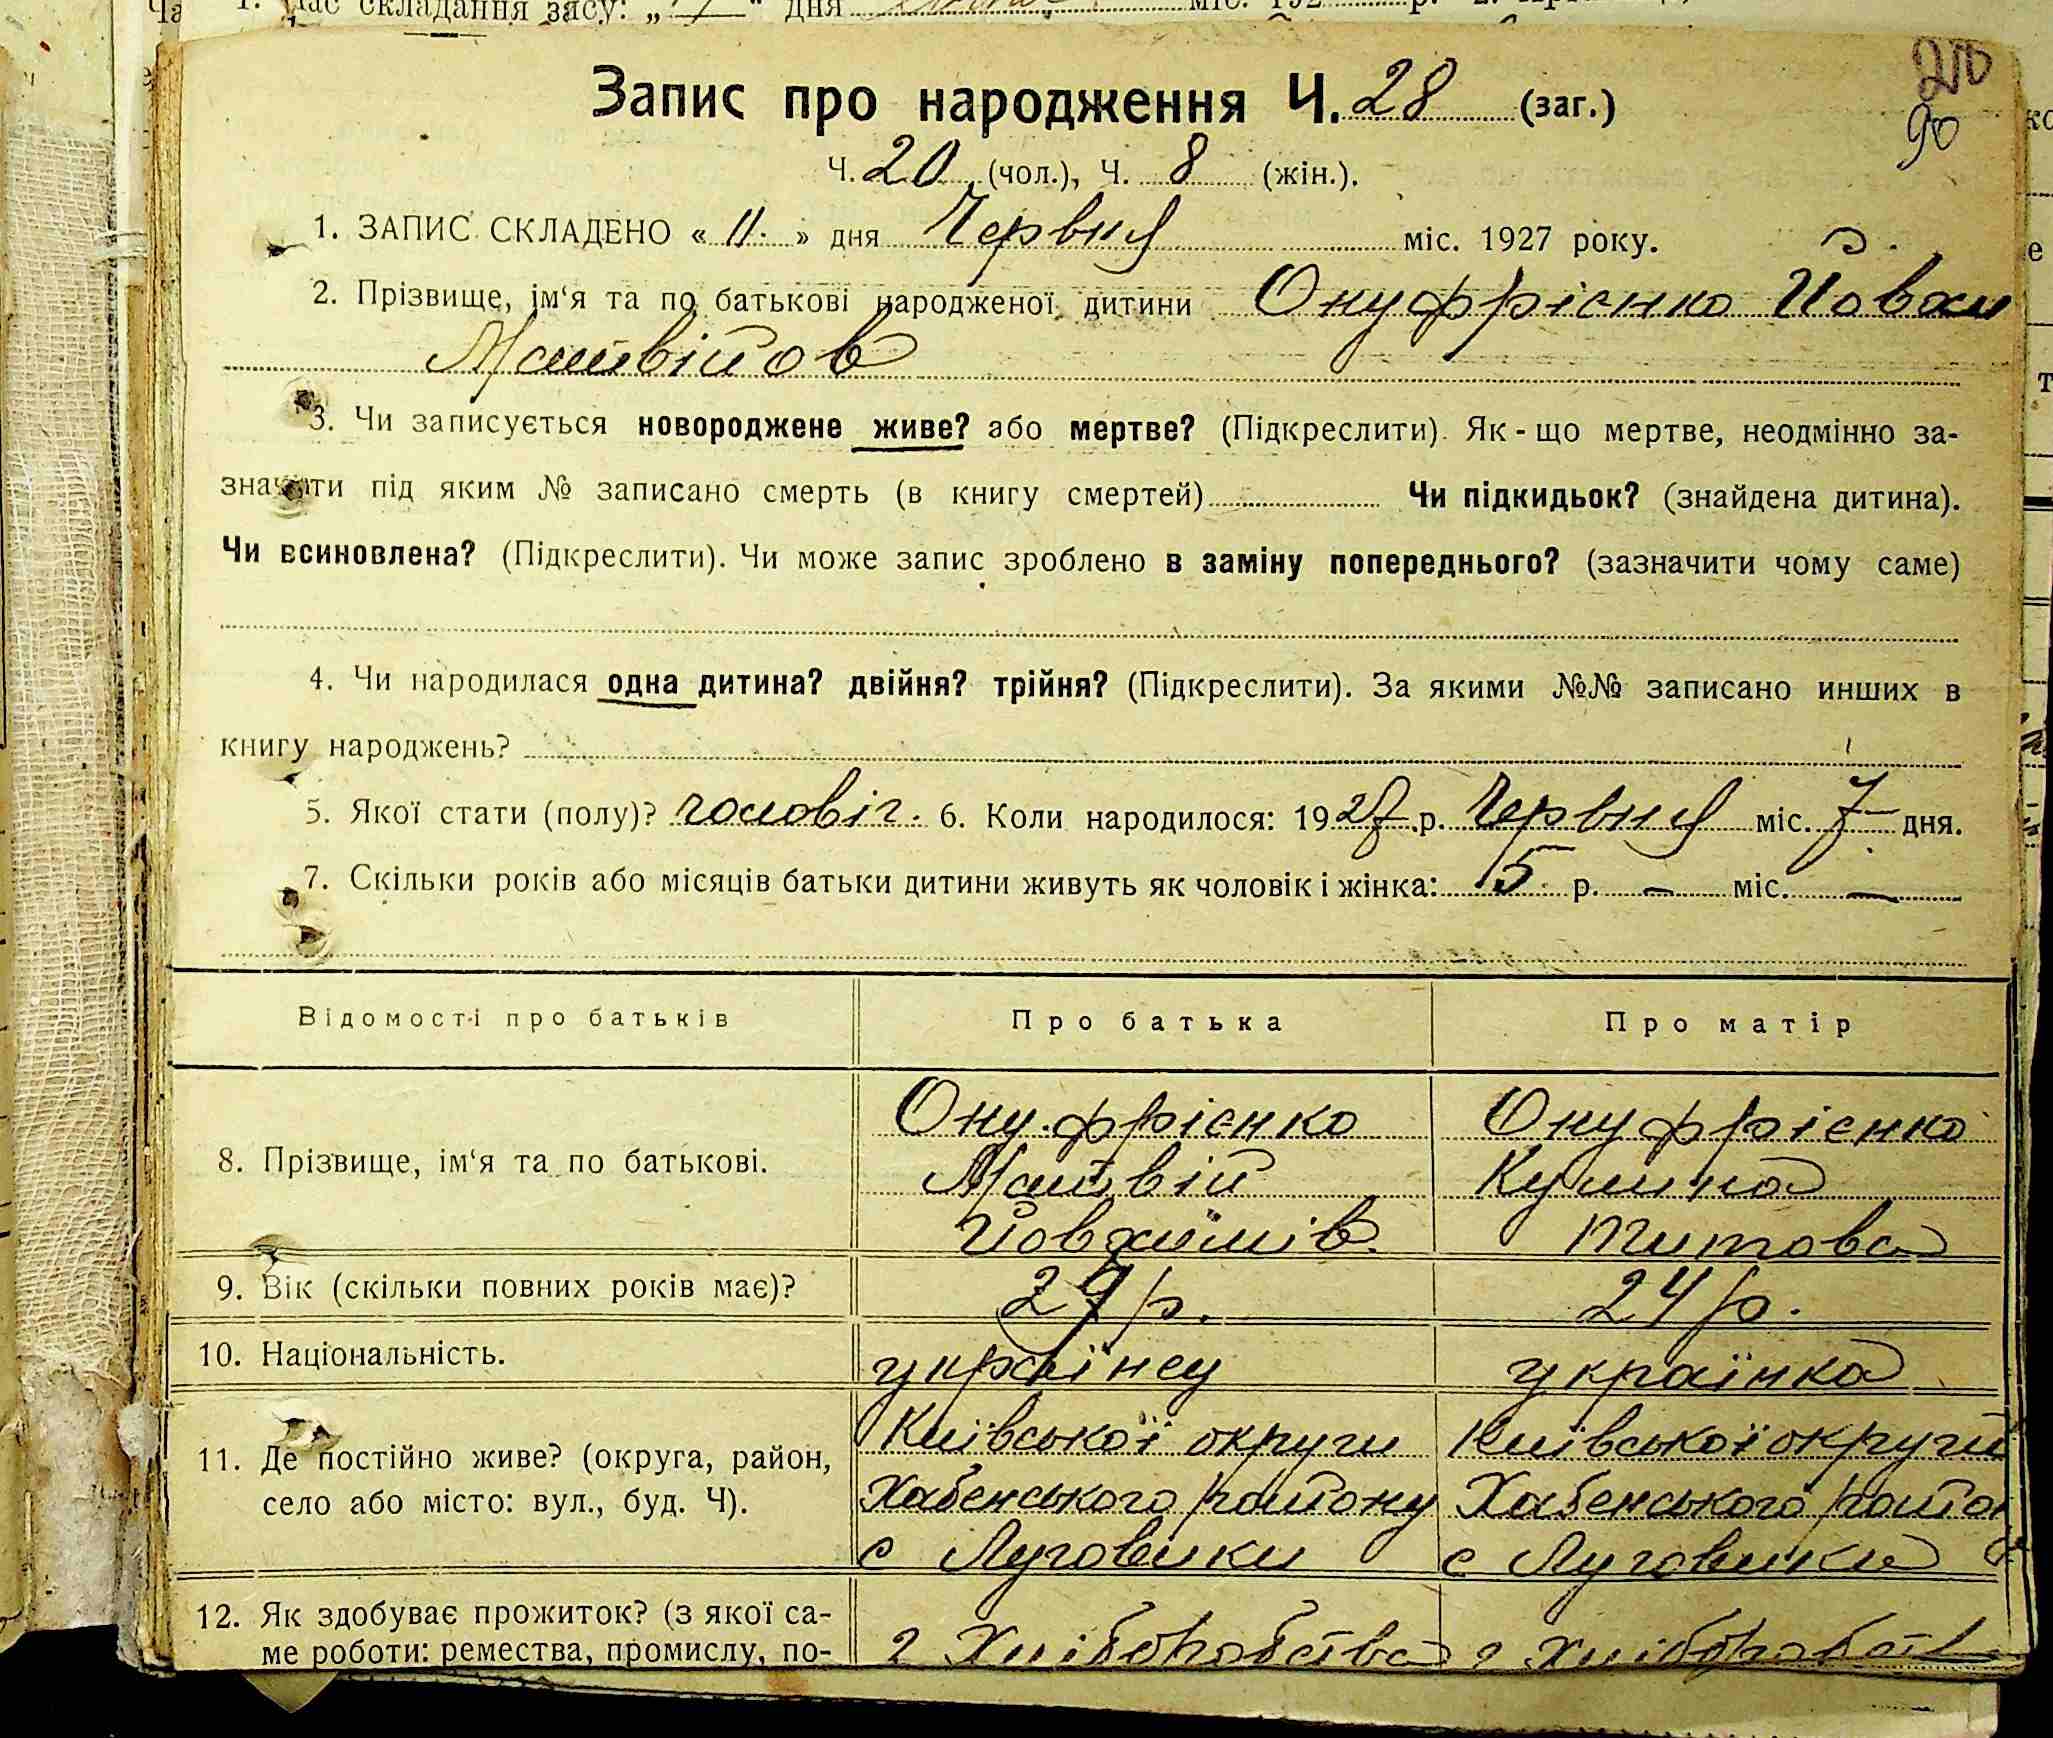 210
90
Запис про народження Ч. 28 (заг.)
Ч. 20 (чол.), Ч. 8 (жін.).
1. ЗАПИС СКЛАДЕНО « 11. » дня Червня міс. 1927 року.
2. Прізвище, ім‘я та по батькові народженої дитини Онуфрієнко Йовхи
Матвійов
3. Чи записується новороджене живе? або мертве? (Підкреслити). Як-що мертве, неодмінно за-
значити під яким № записано смерть (в книгу смертей) Чи підкидьок? (знайдена дитина).
Чи всиновлена? (Підкреслити). Чи може запис зроблено в заміну попереднього? (зазначити чому саме)
4. Чи народилася одна дитина? двійня? трійня? (Підкреслити). За якими №№ записано инших в
книгу народжень?
5. Якої стати (полу)? чоловіч. 6. Коли народилося: 1927 р. Червня міс. 7 дня.
7. Скільки років або місяців батьки дитини живуть як чоловік і жінка: 5 р. — міс. —
Відомості про батьків Про батька Про матір
8. Прізвище, ім‘я та по батькові.
Онуфрієнко Онуфрієнко
Матвій Кулина
Йовхимів. Титова
9. Вік (скільки повних років має)? 29 р. 24 р.
10. Національність. українец українка
11. Де постійно живе? (округа, район,
село або місто: вул., буд. Ч).
Київської округи Київської округи
Хабенського району Хабенського район
с Луговики с Луговики
12. Як здобуває прожиток? (з якої са-
ме роботи: ремества, промислу, по-
з Хліборобства з Хліборобств